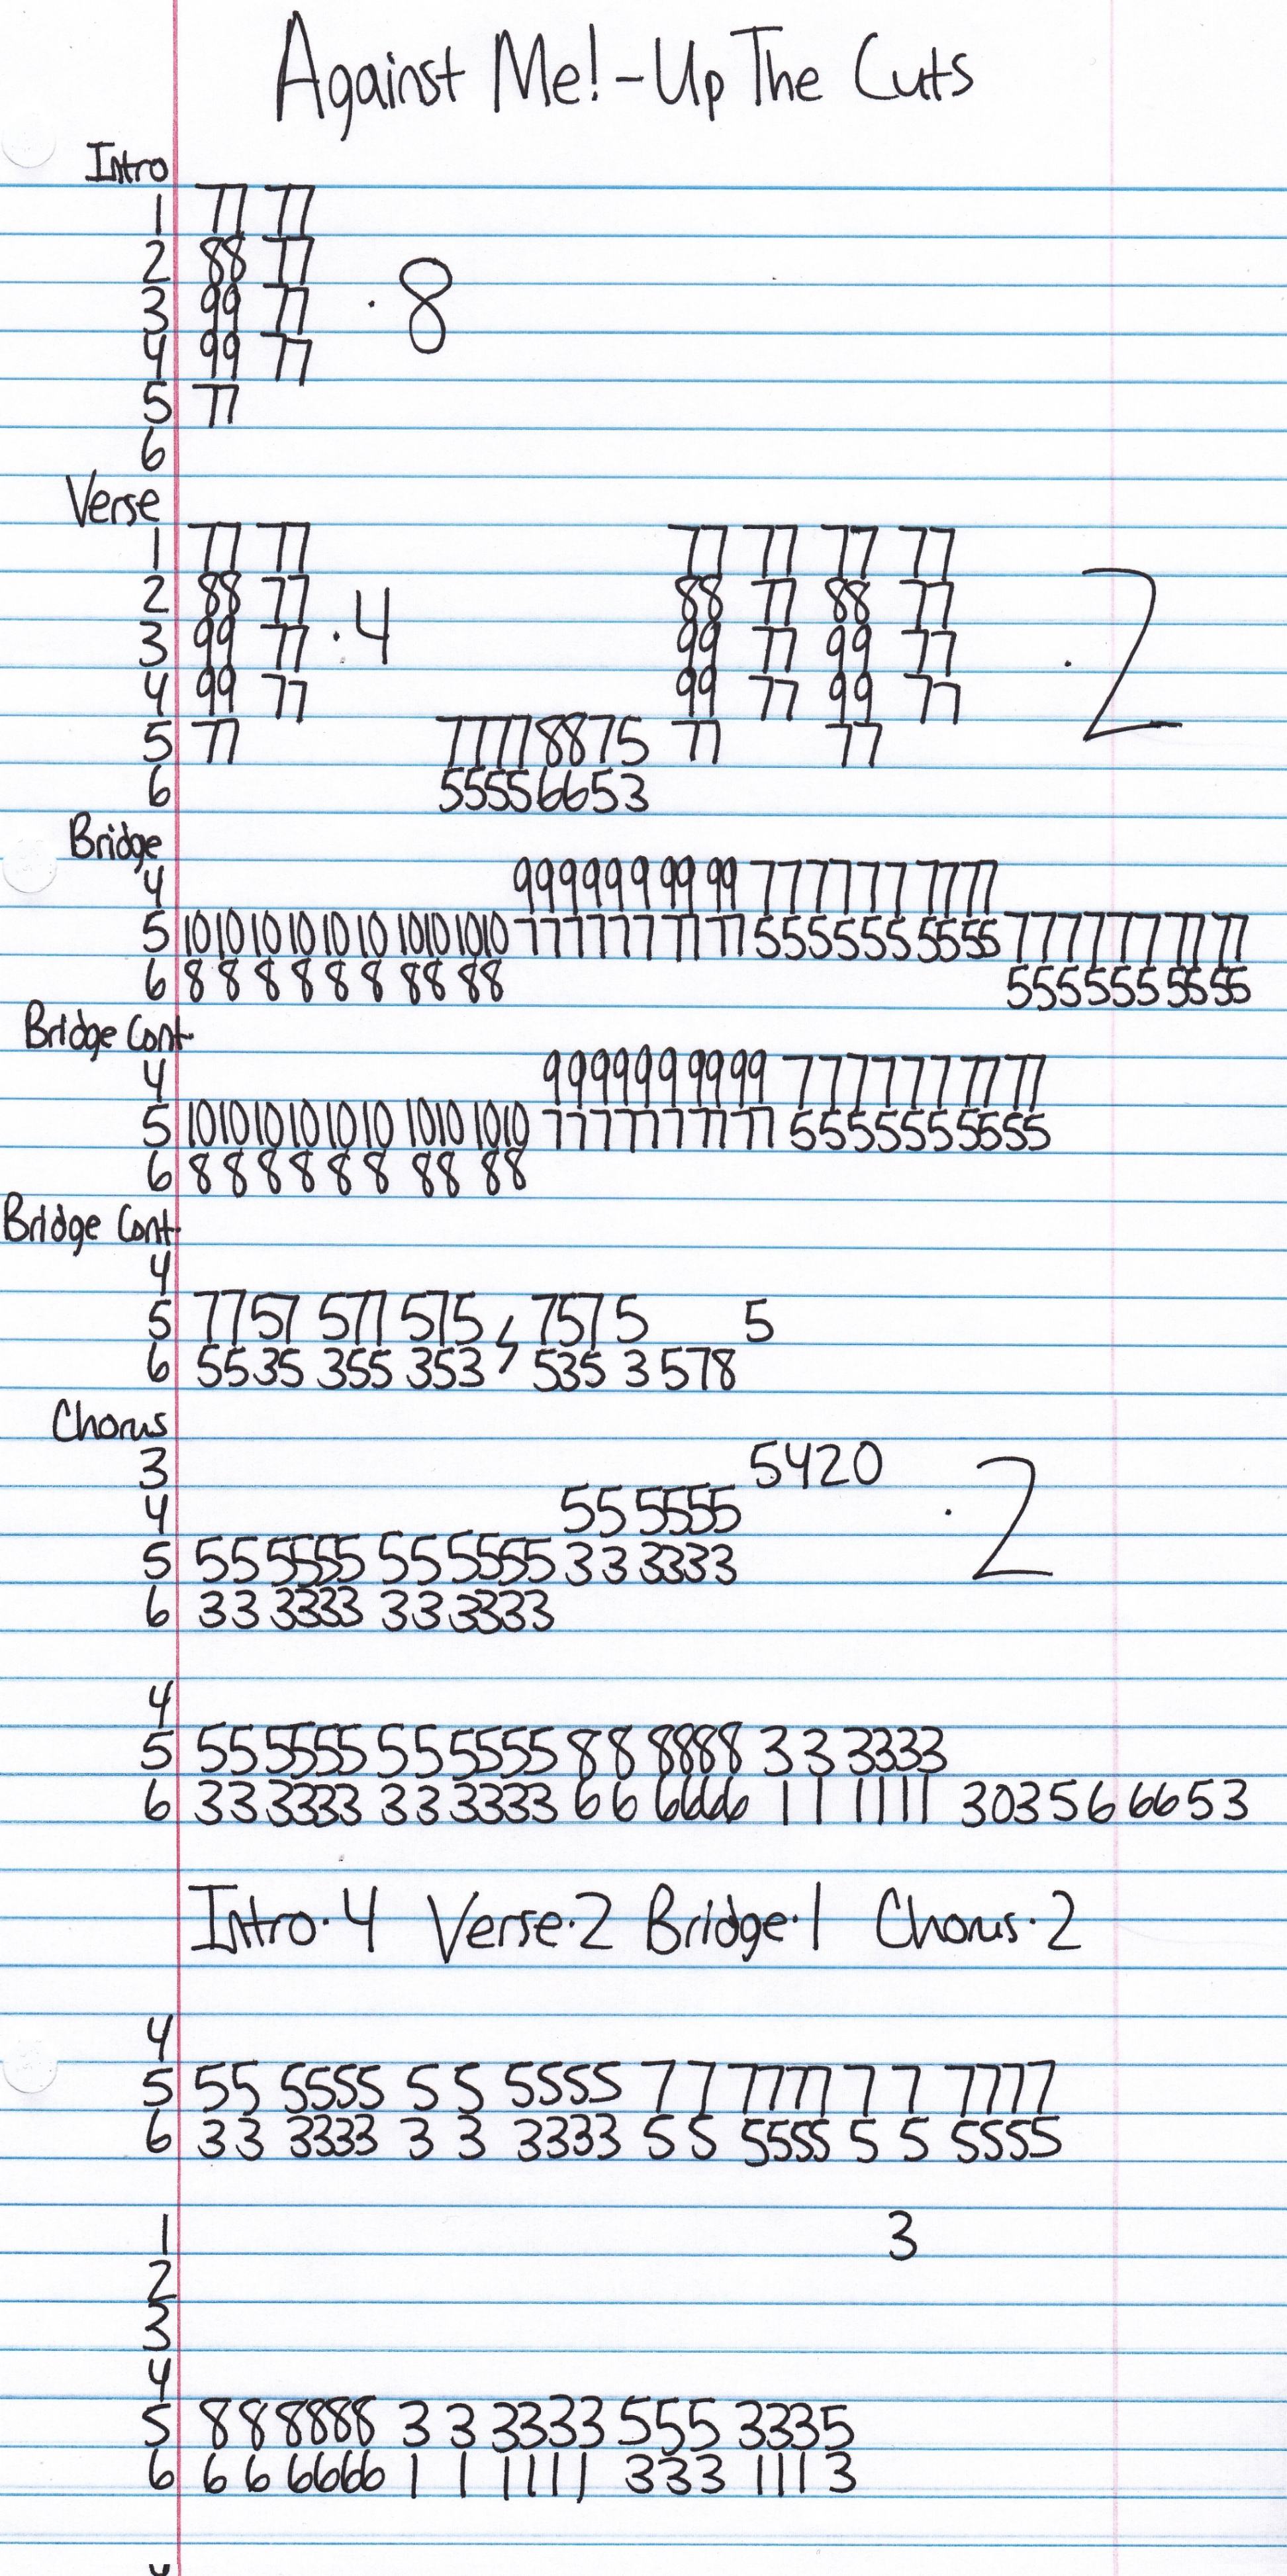 Against Me! - Up The Cuts
Intro
1 77 77
2 88 77
3 99 77 · 8
4 99 77
5 77
6
Verse
1 77 77 77 77 77 77
2 88 77 88 77 88 77
3 99 77 · 4 99 77 99 77 · 2
4 99 77 99 77 99 77
5 77 77778875 77 77
6 55556653
Bridge
4 999999 99 99 777777 7777
5 10 10 10 10 10 10 1010 1010 777777 77 77 555555 5555 777777 77 77
6 8 8 8 8 8 8 88 88 555555 5555
Bridge Cont.
4 999999 9999 777777 7777
5 10 10 10 10 10 10 1010 1010 777777 7777 555555 5555
6 8 8 8 8 8 8 88 88
Bridge Cont.
4
5 7757 577 575, 7575 5
6 5535 355 353, 535 3 578
Chorus
3 5420
4 55 5555 · 2
5 55 5555 55 5555 33 3333
6 33 3333 33 3333
4
5 55 5555 55 5555 88 8888 33 3333
6 33 3333 33 3333 66 6666 11 1111 303566653
Intro·4 Verse·2 Bridge·1 Chorus·2
4
5 55 5555 5 5 5555 7 7 7777 7 7 7777
6 33 3333 3 3 3333 5 5 5555 5 5 5555
1 3
2
3
4
5 8 8 8888 3 3 3333 555 3335
6 6 6 6666 1 1 1111 333 1113